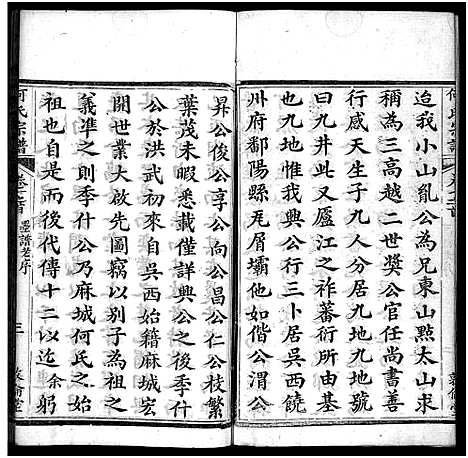 何氏宗譜
迨我小山亂公為兄東山點太山求
稱為三高越二世奬公官任尚書善
行感天生子九人分居九地九地號
為九井此又廬江之祚蕃衍所由基
也九地惟何公行三卜居吳西饒
州府鄱陽縣瓦屑壩他如偕公渭公
昇公俊公享公向公昌公仁公枝繁
葉茂未暇悉載僅詳興公之後季什
公於洪武初來自吳西始籍麻城宏
開世業大啟先圖竊以别子為祖之
義準之則季什公乃麻城何氏之始
祖也自是而後代傳十二以迄余躬
何氏宗譜
卷之首
墨譜老序
三
敦倫堂